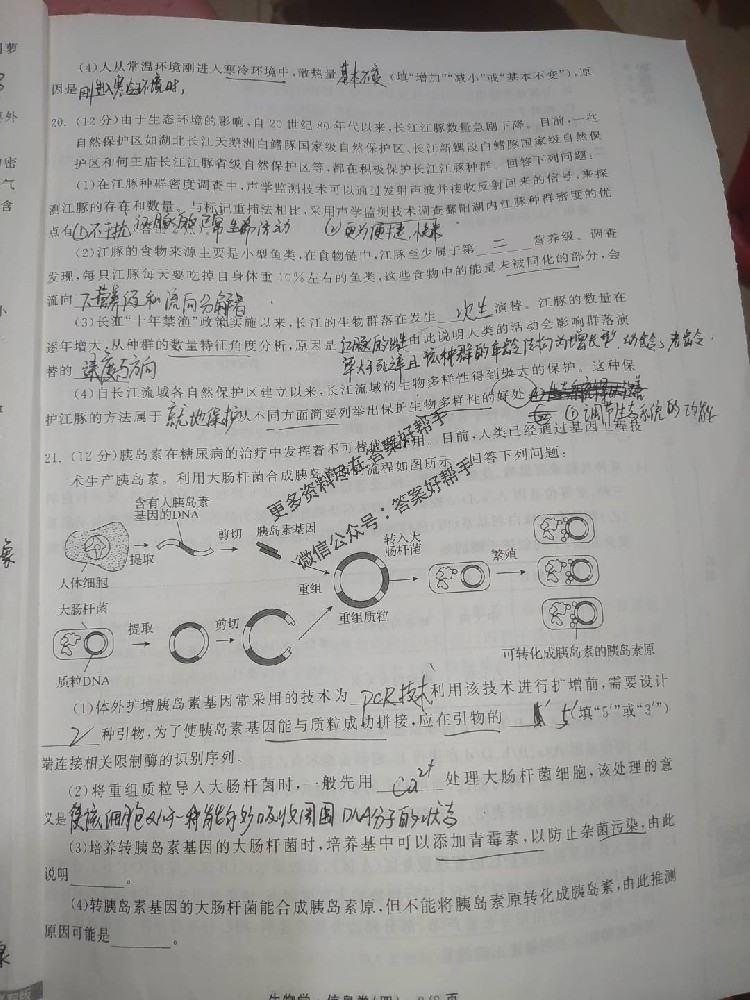 (4)人从常温环境刚进入寒冷环境中,散热量 基本不变 (填"增加""减小"或"基本不变"),原
因是 刚进入寒冷环境时,
20. (12分)由于生态环境的影响,自20世纪80年代以来,长江江豚数量急剧下降。目前,一些
自然保护区如湖北长江天鹅洲白鳍豚国家级自然保护区、长江新螺段白鳍豚国家级自然保
护区和何王庙长江江豚省级自然保护区等,都在积极保护长江江豚种群。回答下列问题:
(1)在江豚种群密度调查中,声学监测技术可以通过发射声波并接收反射回来的信号,来探
测江豚的存在和数量。与标记重捕法相比,采用声学监测技术调查鄱阳湖内江豚种群密度的优
点有 ①不干扰江豚的正常生命活动 ②更为便捷、快速
(2)江豚的食物来源主要是小型鱼类,在食物链中,江豚至少属于第 三 营养级。调查
发现,每只江豚每天要吃掉自身体重10%左右的鱼类,这些食物中的能量未被同化的部分,会
流向 下营养级和流向分解者
(3)长江"十年禁渔"政策实施以来,长江的生物群落在发生 次生 演替。江豚的数量在
逐年增大,从种群的数量特征角度分析,原因是 江豚的出生
率大于死亡率且该种群的年龄结构为增长型,幼龄多老龄
由此说明人类的活动会影响群落演
替的 速度与方向
(4)自长江流域各自然保护区建立以来,长江流域的生物多样性得到极大的保护。这种保
护江豚的方法属于 就地保护 从不同方面简要列举出保护生物多样性的好处 ①调节生态系统的功能
21. (12分)胰岛素在糖尿病的治疗中发挥着不可替代的作用。目前,人类已经通过基因工程技
术生产胰岛素。利用大肠杆菌合成胰岛素的流程如图所示。回答下列问题:
更多资料尽在答案好帮手
微信公众号:答案好帮手
含有人胰岛素
基因的DNA
剪切
胰岛素基因
提取
人体细胞
转入大
肠杆菌
繁殖
重组
重组质粒
大肠杆菌
提取
剪切
质粒DNA
可转化成胰岛素的胰岛素原
(1)体外扩增胰岛素基因常采用的技术为 PCR技术 利用该技术进行扩增前,需要设计
2 种引物,为了使胰岛素基因能与质粒成功拼接,应在引物的 5' (填"5'"或"3'")
端连接相关限制酶的识别序列。
(2)将重组质粒导入大肠杆菌时,一般先用 Ca²⁺ 处理大肠杆菌细胞,该处理的意
义是 使该细胞处于一种能够吸收周围DNA分子的状态
(3)培养转胰岛素基因的大肠杆菌时,培养基中可以添加青霉素,以防止杂菌污染,由此
说明______。
(4)转胰岛素基因的大肠杆菌能合成胰岛素原,但不能将胰岛素原转化成胰岛素,由此推测
原因可能是______。